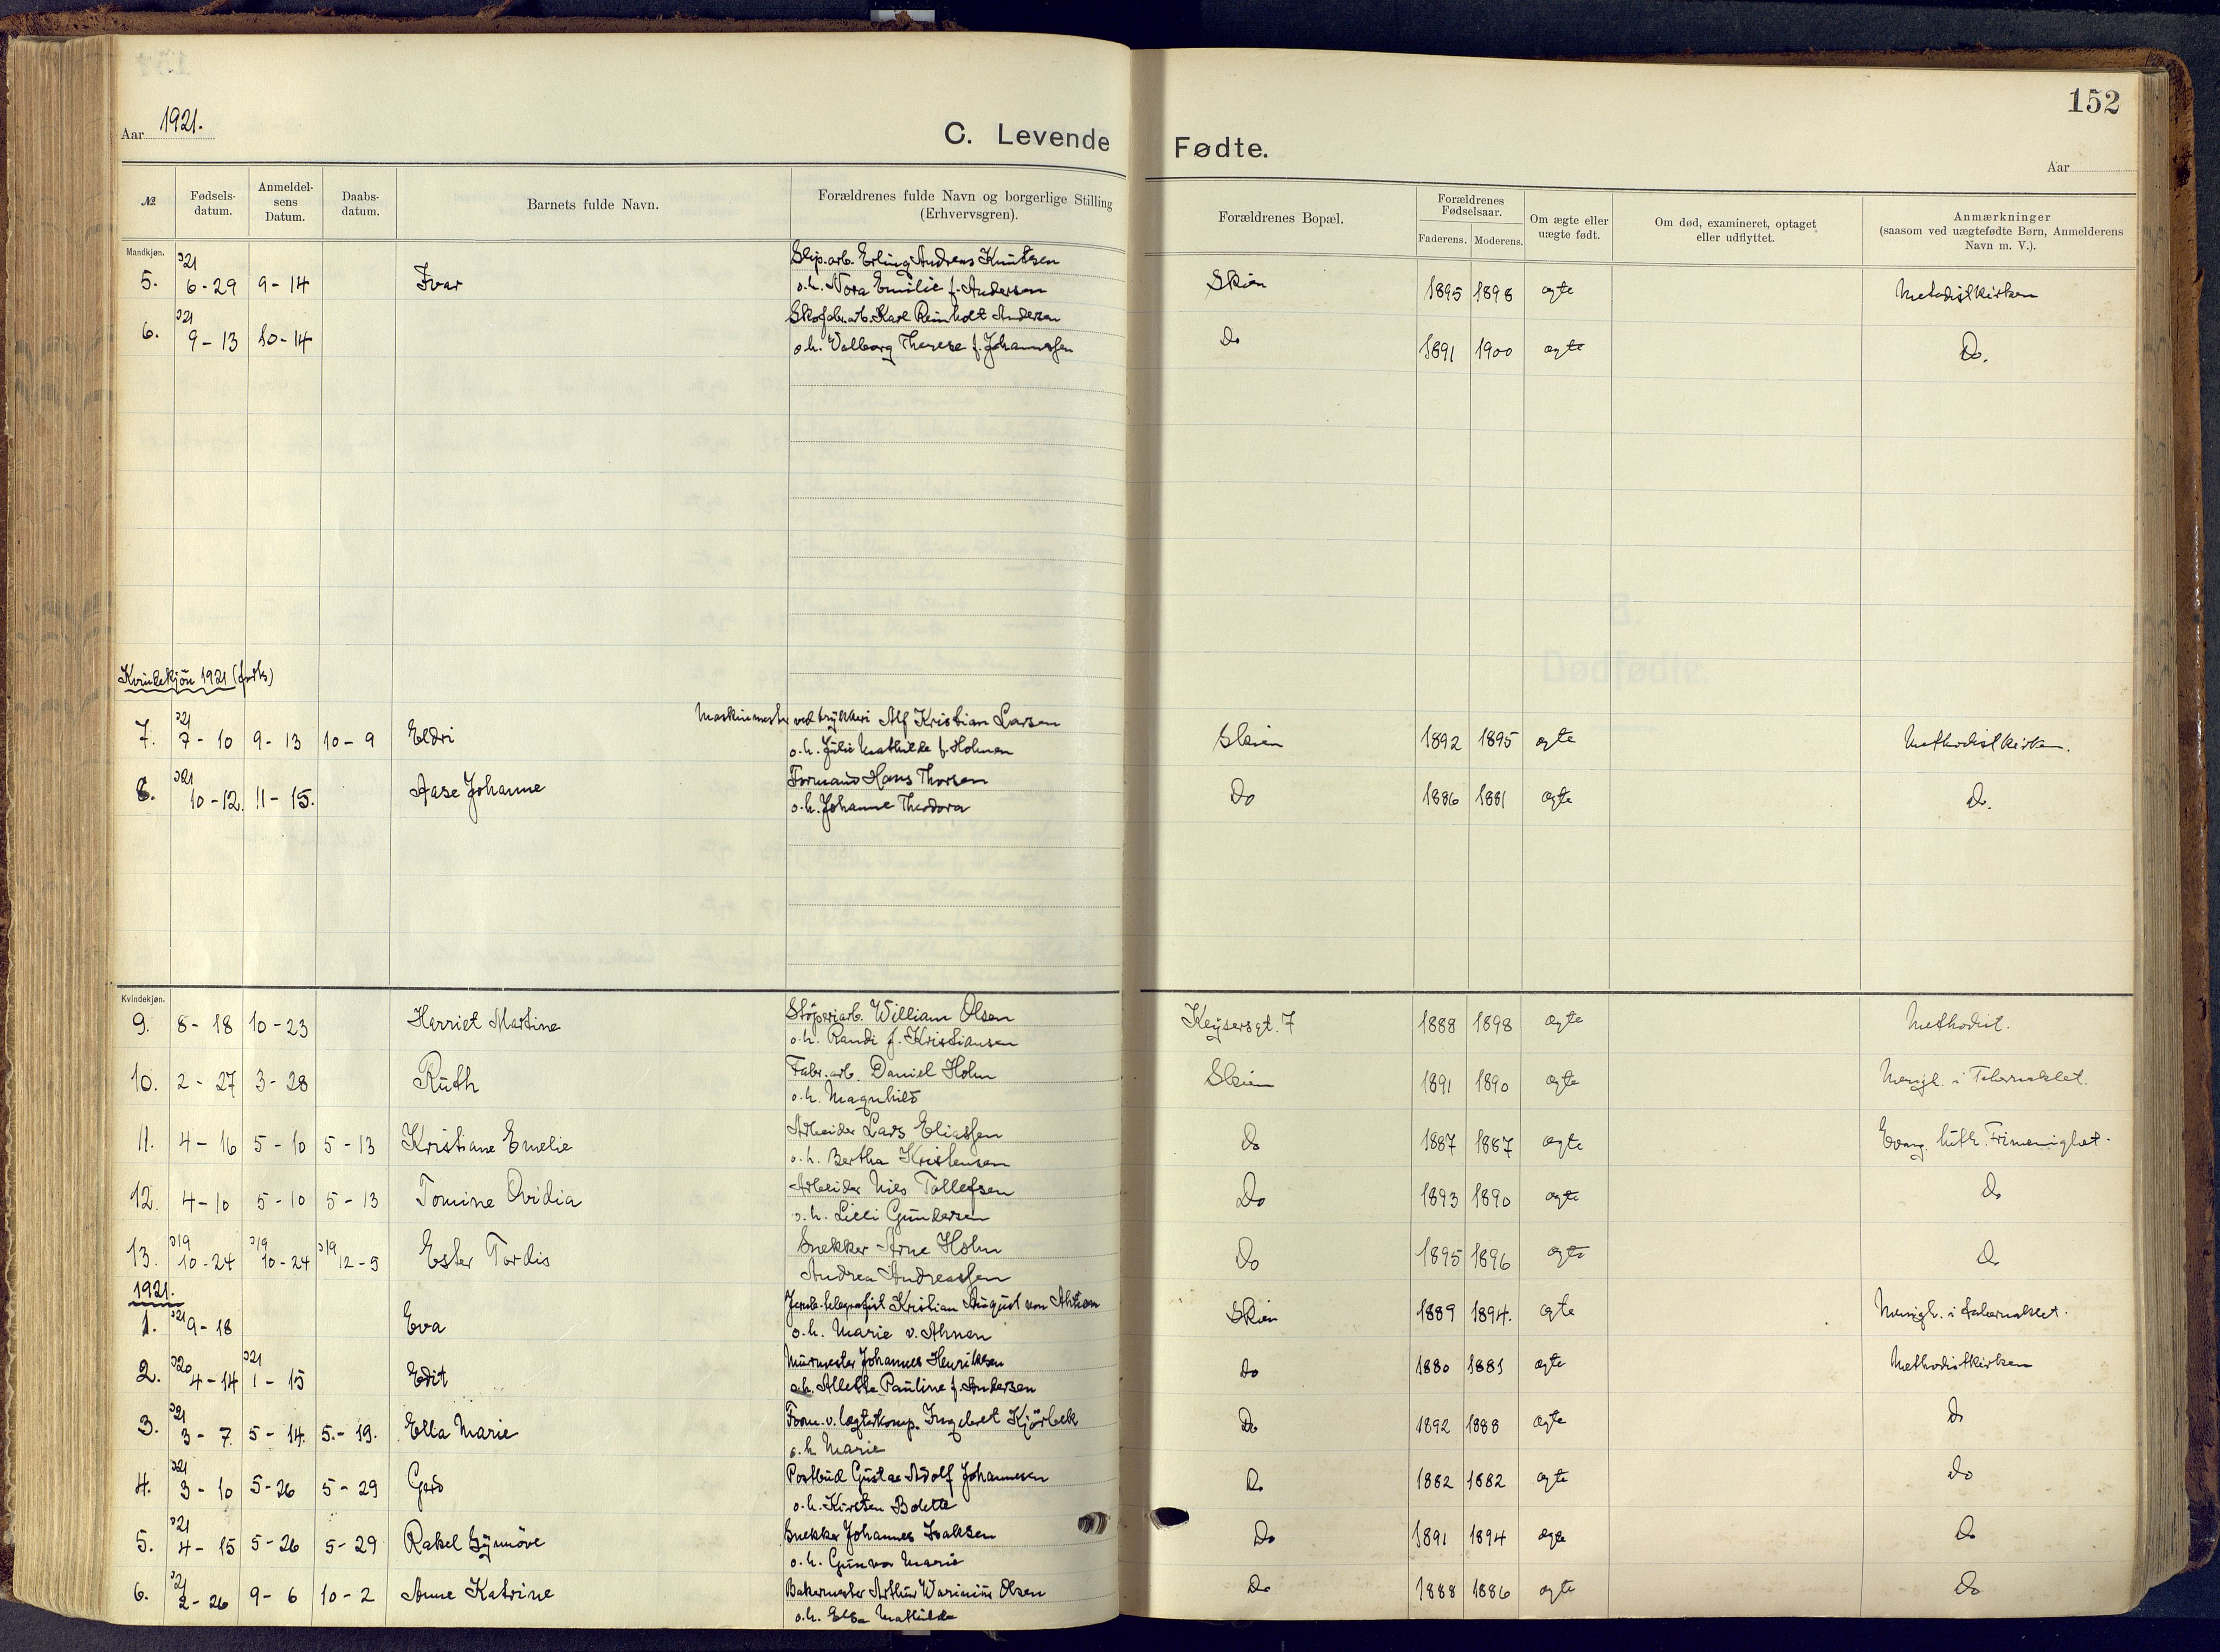 152
Aar 1921.
C. Levende Fødte.
Aar
№. Fødsels-datum. Anmeldel-sens Datum. Daabs-datum. Barnets fulde Navn. Forældrenes fulde Navn og borgerlige Stilling (Erhvervsgren). Forældrenes Bopæl. Forældrenes Fødselsaar. Faderens. Moderens. Om ægte eller uægte født. Om død, examineret, optaget eller udflyttet. Anmærkninger (saasom ved uægtefødte Børn, Anmelderens Navn m. V.).
Mandkjøn.
Slip.arb. Erling Andreas Knutsen
5. 21 6-29 9-14 Ivar o.h. Nora Emilie f. Andersen Skien 1895 1898 egte Metodistkirken
Skofabr.arb. Karl Reinholt Andersen
6. 21 9-13 10-14 o.h. Valborg Therese f. Johannessen Do 1891 1900 egte Do.
Kvindekjön 1921 (forts)
Maskinmester ved trykkeri Alf Kristian Larsen
7. 21 7-10 9-13 10-9 Eldri o.h. Julie Mathilde f. Holmen Skien 1892 1895 egte Methodistkirken.
Formand Hans Thorsen
8. 21 10-12. 11-15. Aase Johanne o.h. Johanne Theodora Do 1886 1881 egte Do.
Kvindekjøn.
Støperiarb. William Olsen
9. 8-18 10-23 Harriet Martine o.h. Randi f. Kristiansen Keysersgt. 7 1888 1898 egte Methodist.
Fabr.arb. Daniel Holm
10. 2-27 3-28 Ruth o.h. Magnhild Skien 1891 1890 egte Menigh. i Tabernaklet.
Arbeider Lars Eliassen
11. 4-16 5-10 5-13 Kristiane Emelie o.h. Bertha Kristensen do 1887 1887 egte Evang. luth. Frimenighet.
Arbeider Nils Tollefsen
12. 4-10 5-10 5-13 Tomine Ovidia o.h. Lilli Gundersen Do 1893 1890 egte Do
Snekker Arne Holm
13. 19 10-24 19 10-24 19 12-5 Ester Tordis Andrea Andreassen Do 1895 1896 egte Do
1921.
Jernb.telegrafist Kristian August von Ahnen
1. 21 9-18 Eva o.h. Marie v. Ahnen Skien 1889 1894. egte Menigh. i tabernaklet.
Murmester Johannes Henriksen
2. 20 4-14 21 1-15 Edit o.h. Alette Pauline f. Andersen do 1880 1881 egte Methodistkirken
Form. v. lagterkomp. Ingebret Kjörbek
3. 21 3-7. 5-14. 5-19. Ella Marie o.h. Marie Do 1892 1888 egte Do
Postbud Gustav Adolf Johannesen
4. 21 3-10 5-26 5-29 Gerd o.h. Kirsten Bolette Do 1882 1882 egte Do
Snekker Johannes Isaksen
5. 21 4-15 5-26 5-29 Rakel Synnöve o.h. Gunvor Marie Do 1891 1894 egte Do
Bakermester Arthur Olsen
6. 21 2-26 9-6 10-2 Anne Katrine o.h. Elsa Mathilde Do 1888 1886 egte Do